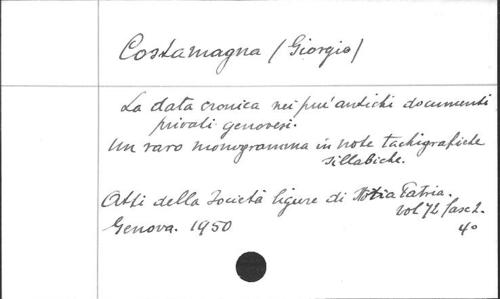 Costamagna (Giorgio)
La data cronica nei piu' antichi documenti
privati genovesi.
Un raro monogramma in note tachigrafiche
sillabiche.
Atti della Società ligure di Storia Patria.
vol 72 fasc 2.
Genova. 1950
4°